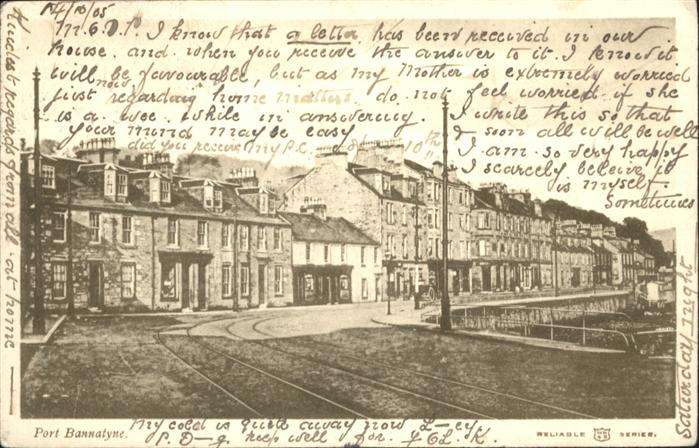 14/10/05
M.G.D.P. I know that a letter has been received in our
house. and. when you receive the answer to it. I know it
will be favourable, but as my Mother is extremely worried
just now regarding home matters. do not feel worried if she
is a wee while in answering. I wrote this so that
your mind may be easy & soon all will be well
did you receive my P.C. 10th I am so very happy
I scarcely believe it
is myself
Sometimes
Kindest regard from all at home
Saturday night
My cold is quite away now L-ey.
P. D-g keep well for.
Port Bannatyne.
RELIABLE SERIES.